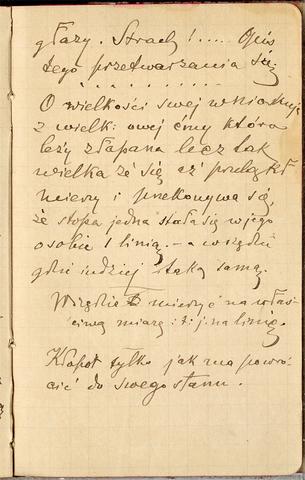 głazy. Strach!.... Opis
tego przetwarzania się
. . . . . . . . . .
O wielkości swej wnioskuje
z wielk: owej ćmy która
leży złapana lecz tak
wielka że się aż przeląkł
mierzy i przekonywa się,
że stopa jedna stała się w jego
osobie 1 linią. – a wszędzie
gdzie indziej taką samą.
Wszędzie mierzyć na właś-
ciwą miarę i t: j: na linię.
Kłopot tylko jak ma powró-
cić do swego stanu.